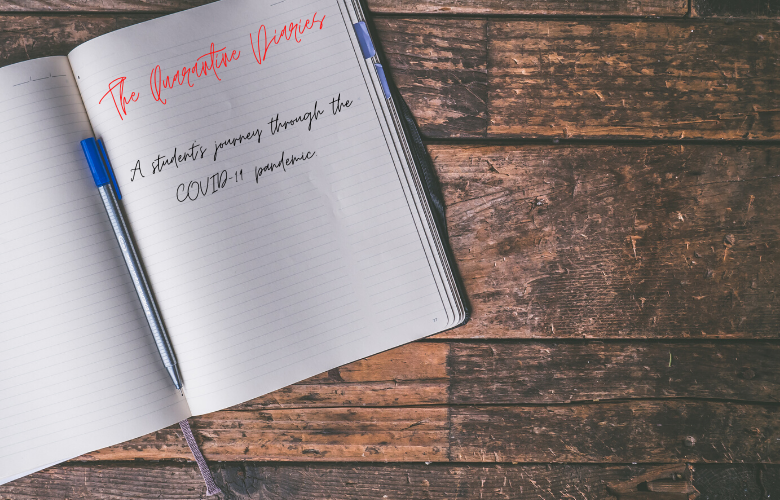 The Quarantine Diaries
A student's journey through the
COVID-19 pandemic